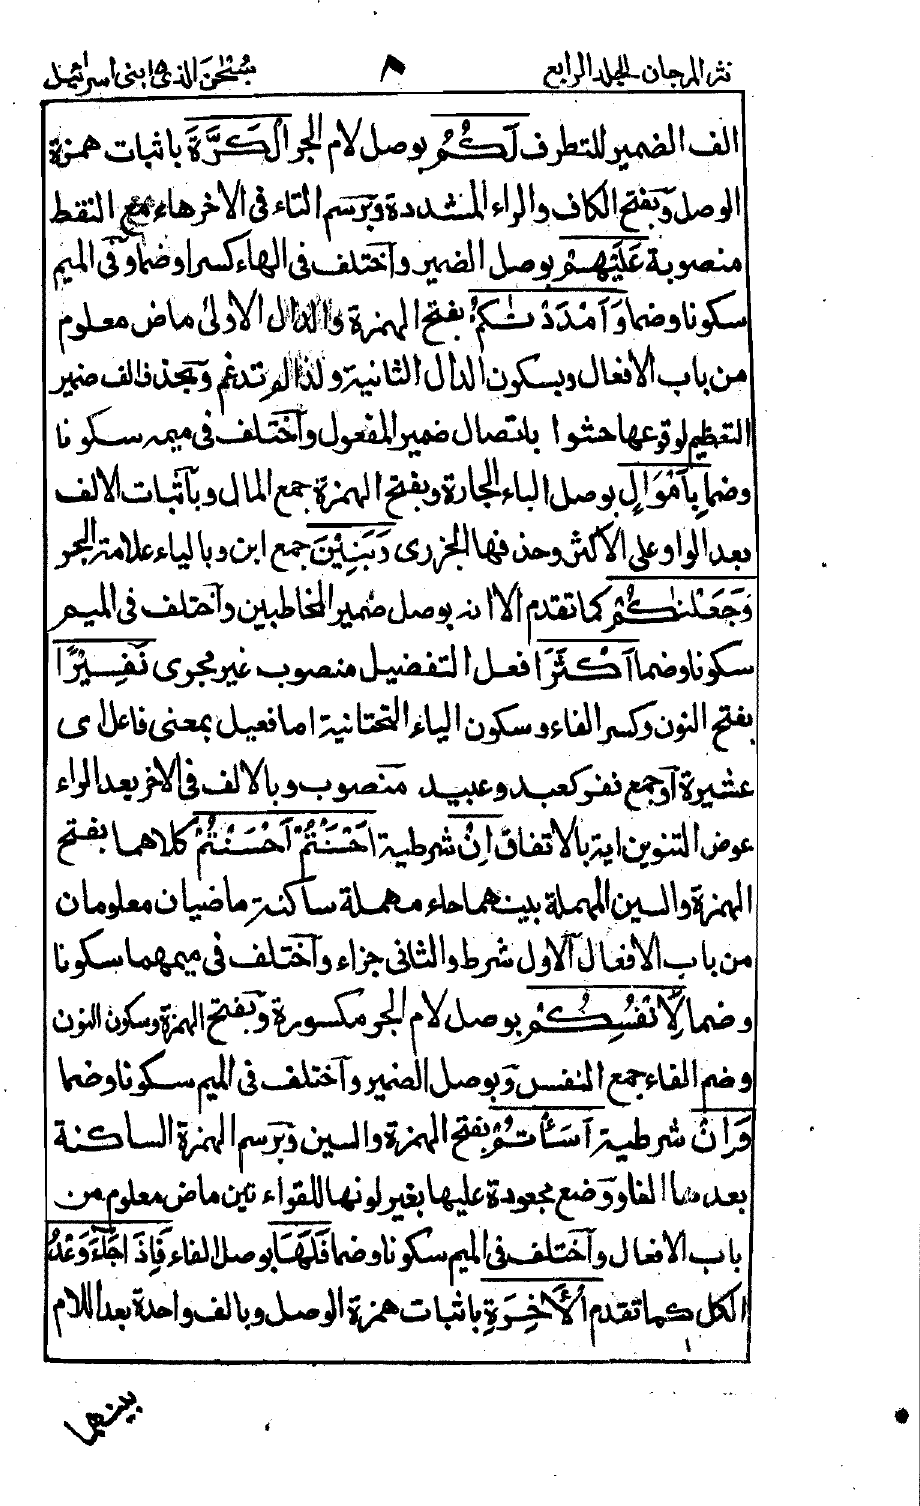 نثر المرجان الجلد الرابع ٨ سُبْحٰنَ الذی ۱۵ بنی اسرائیل
الف الضمير للتطرف لَكُمُ بوصل لام الجر الْكَرَّةَ باثبات همزة
الوصل وَبفتح الكاف والراء المشددة وَبرسم التاء فى الاخر هاء مع النقط
منصوبة عَلَيْهِمْ بوصل الضمير وآختلف فى الهاء كسرا وضما وفى الميم
سكونا وضما وَاَمْدَدْنٰكُمْ بفتح الهمزة والدال الاولىٰ ماض معلوم
من باب الافعال وبسكون الدال الثانية ولذا لم تدغم وَبحذف الف ضمير
التعظيم لوقوعها حشوا باتصال ضمير المفعول وآختلف فى ميمه سكونا
وضما بِاَمْوَالٍ بوصل الباء الجارة وبفتح الهمزة جمع المال وبآثبات الالف
بعد الواو على الاكثر وحذفها الجزرى وَبَنِيْنَ جمع ابن وبالياء علامة الجر
وَجَعَلْنٰكُمْ كما تقدم الا انه بوصل ضمير المخاطبين وآختلف فى الميم
سكونا وضما اَكْثَرَ افعل التفضيل منصوب غير مجرى نَفِيْرًا
بفتح النون وكسر الفاء وسكون الياء التحتانية اما فعيل بمعنى فاعل اى
عشيرة آوجمع نفر كعبد وعبيد منصوب وبالالف فى الاخر بعد الراء
عوض التنوين اية بالاتفاق اِنْ شرطية اَحْسَنْتُمْ اَحْسَنْتُمْ كلاهما بفتح
الهمزة والسين المهملة بينهما حاء مهملة ساكنة ماضيان معلومان
من باب الافعال آلاول شرط والثانى جزاء وآختلف فى ميمهما سكونا
وضما لِاَنْفُسِكُمْ بوصل لام الجر مكسورة وَبفتح الهمزة وسكون النون
وضم الفاء جمع النفس وَبوصل الضمير وآختلف فى الميم سكونا وضما
وَاِنْ شرطية اَسَأْتُمْ بفتح الهمزة والسين وَبرسم الهمزة الساكنة
بعدها الفا ووضع مجعودة عليها بغير لونها للقراءتين ماض معلوم من
باب الافعال وآختلف فى الميم سكونا وضما فَلَهَا بوصل الفاء فَاِذَا جَآءَ وَعْدُ
الكل كما تقدم الْاٰخِرَةِ باثبات همزة الوصل وبالف واحدة بعد اللام
بينهما